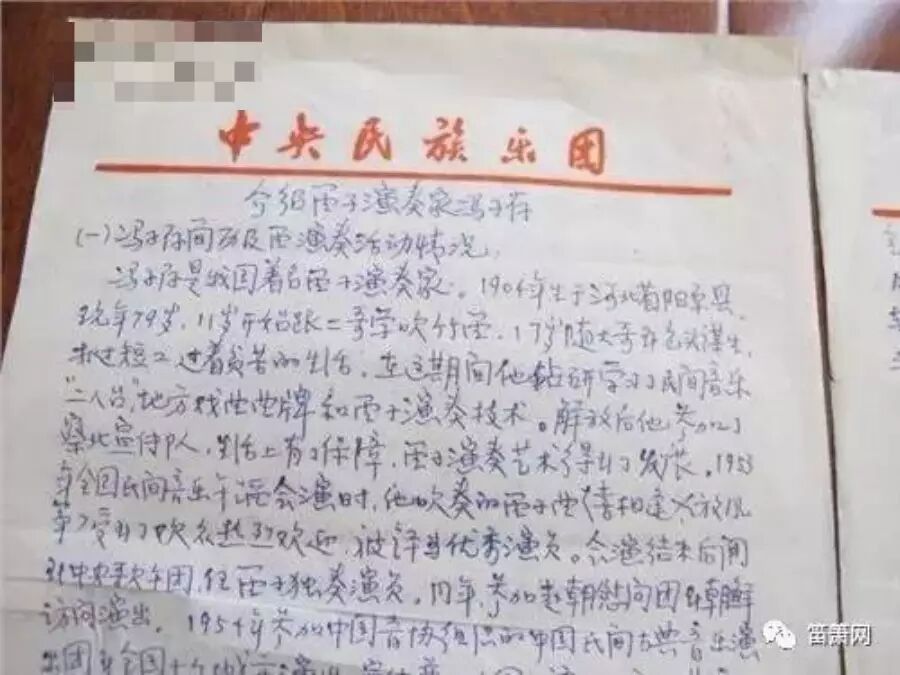 中央民族乐团
介绍笛子演奏家冯子存
(一)冯子存简历及笛演奏活动情况。
冯子存是我国著名笛子演奏家。1904年生于河北省阳原县,
现年79岁,11岁开始跟二哥学吹竹笛,17岁随大哥到包头谋生,
扛过短工过着贫苦的生活,在这期间他钻研学习了民间音乐
“二人台”,地方戏曲曲牌和笛子演奏技术。解放后他参加了
察北宣传队,生活上有了保障,笛子演奏艺术得到了发展。1953
年全国民间音乐午蹈会演时,他吹奏的笛子曲《喜相逢》《放风
筝》受到了观众热烈欢迎,被评为优秀演员。会演结束后调
到中央歌午团,任笛子独奏演员。同年,参加赴朝慰问团到朝鲜
访问演出。1954年参加中国音协组织的中国民间古典音乐演
出团在全国十
笛箫网